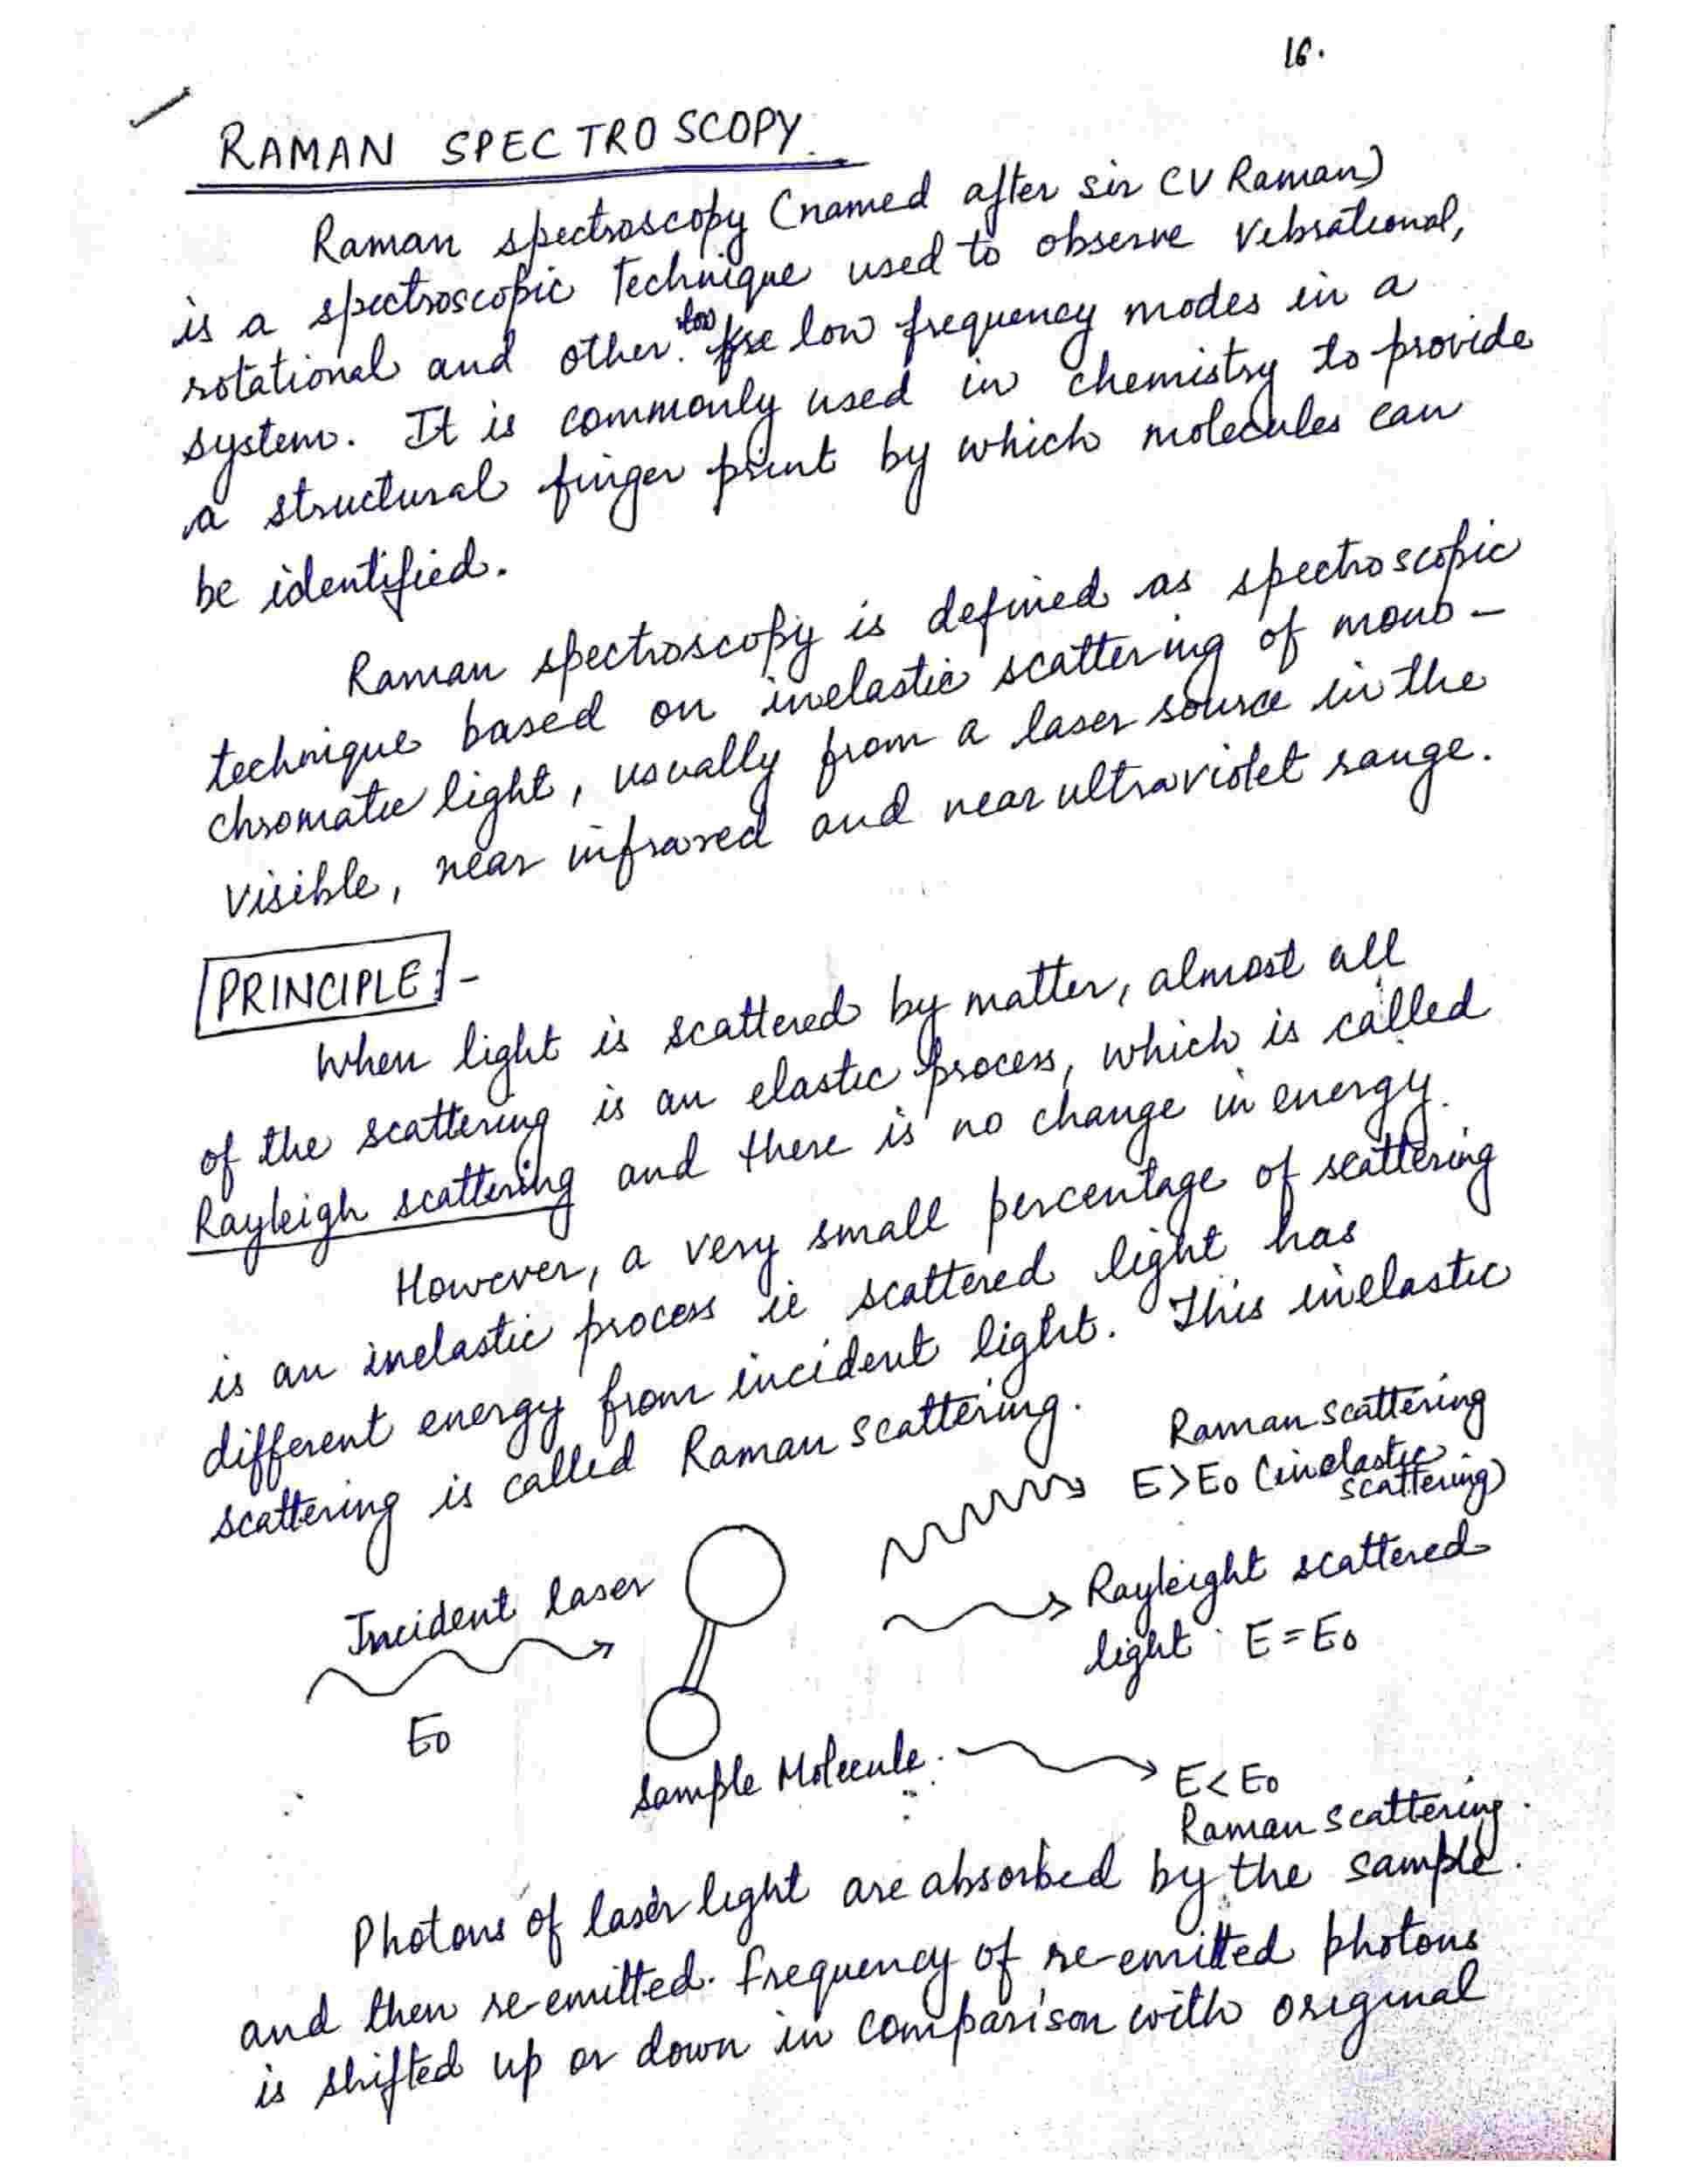 16.
RAMAN SPECTROSCOPY.
Raman spectroscopy (named after sir CV Raman)
is a spectroscopic Technique used to observe Vibrational,
rotational and other low frequency modes in a
system. It is commonly used in chemistry to provide
a structural finger print by which molecules can
be identified.
Raman spectroscopy is defined as spectroscopic
technique based on inelastic scattering of mono-
chromatic light, usually from a laser source in the
visible, near infrared and near ultraviolet range.
PRINCIPLE:-
When light is scattered by matter, almost all
of the scattering is an elastic process, which is called
Rayleigh scattering and there is no change in energy.
However, a very small percentage of scattering
is an inelastic process ie scattered light has
different energy from incident light. This inelastic
scattering is called Raman scattering.
Raman scattering
E>E0 (inelastic
scattering)
Incident laser
Rayleight scattered
light E=E0
E0
Sample Molecule.
E<E0
Raman scattering.
Photons of laser light are absorbed by the sample.
and then re-emitted. frequency of re-emitted photons
is shifted up or down in comparison with original